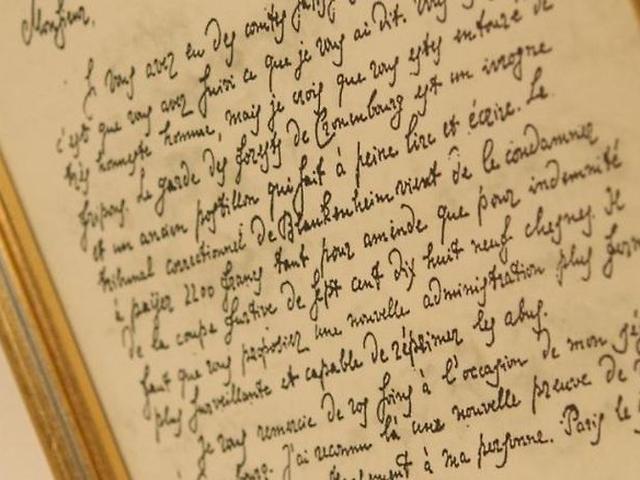 Monsieur,
Si vous avez eu des comités
c'est que vous avez suivi ce que je vous ai dit. Vous
très honneste homme, mais je crois que vous estes entouré de
fripons. Le garde des forests de Cronenbourg est un ivrogne
et un ancien postillon qui sait à peine lire et écrire. Le
tribunal correctionnel de Blankenheim vient de le condamner
à païer 2200 francs tant pour aminde que pour indemnité
de la coupe furtive de sept cent dix huit neuf chesnes. Il
faut que vous proposiez une nouvelle administration plus
plus surveillante et capable de réprimer les abus.
Je vous remercie de vos soins à l'occasion de mon
J'ai reconnu là une nouvelle preuve de
à ma personne. Paris le